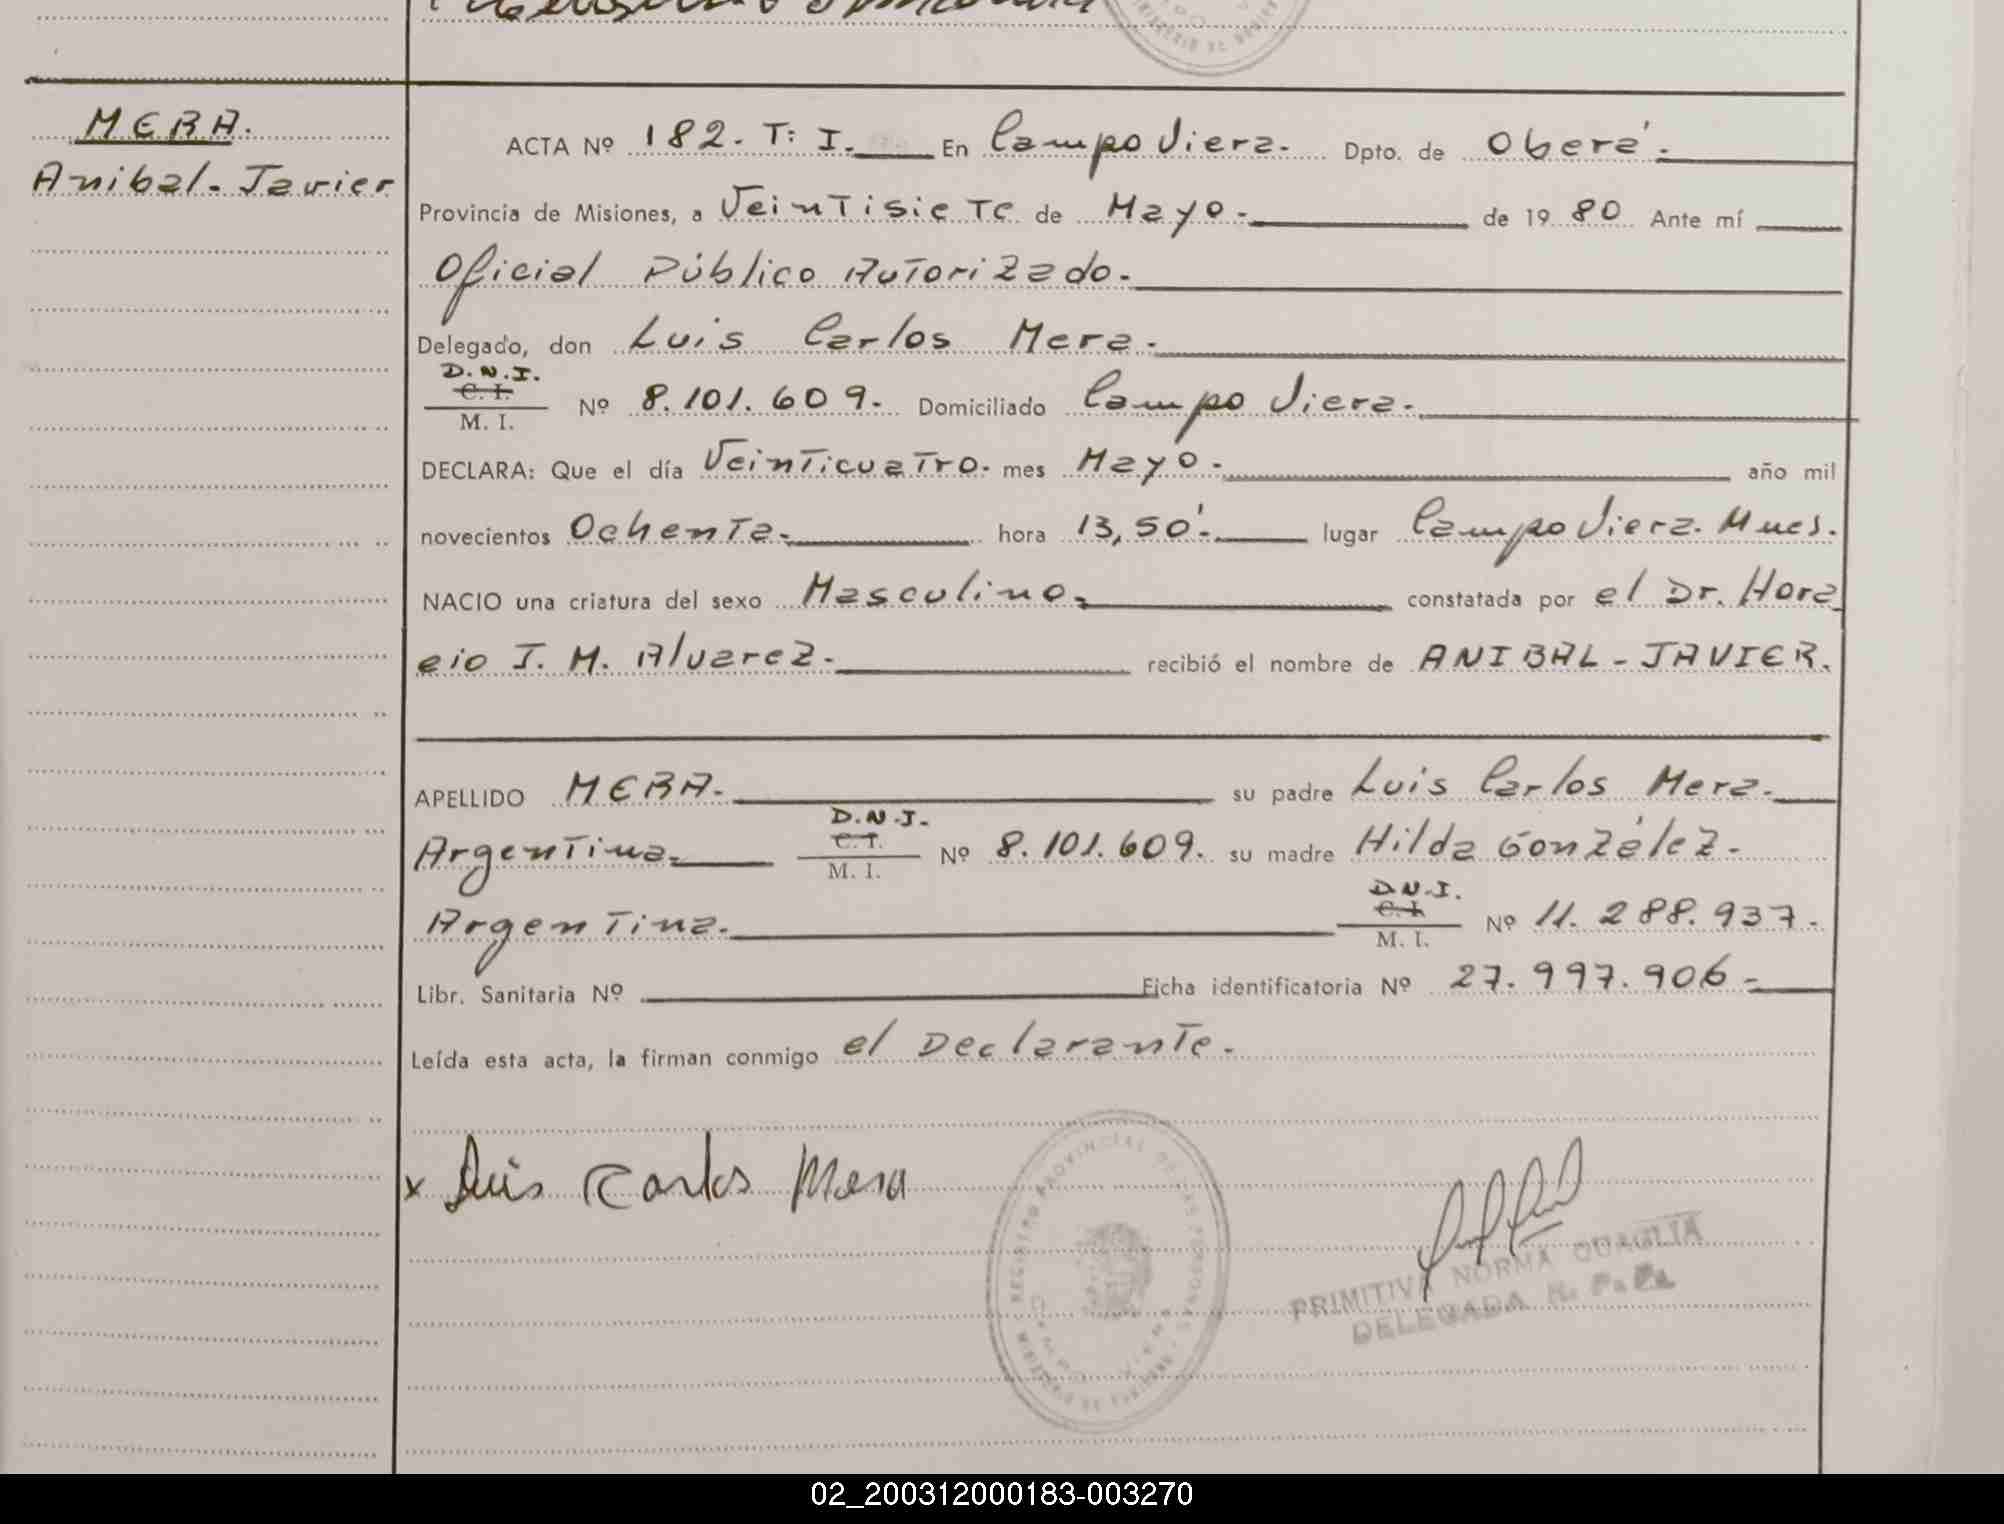 MERA.
Anibal-Javier
ACTA Nº 182. T: I. En Campo Viera. Dpto. de Oberá.
Provincia de Misiones, a Veintisiete de Mayo.- de 19 80 Ante mí
Oficial Público Autorizado.-
Delegado, don Luis Carlos Mera.-
D.N.I.
C. I.
M. I.
Nº 8.101.609. Domiciliado Campo Viera.-
DECLARA: Que el día Veinticuatro. mes Mayo.- año mil
novecientos Ochenta.- hora 13,50'.- lugar Campo Viera. Mnes.
NACIO una criatura del sexo Masculino.- constatada por el Dr. Hora
cio I. M. Alvarez.- recibió el nombre de ANIBAL-JAVIER.
APELLIDO MERA.- su padre Luis Carlos Mera.-
D.N.I.
C. I.
M. I.
Argentina.- Nº 8.101.609. su madre Hilda González.-
D.N.I.
C. I.
M. I.
Argentina.- Nº 11.288.937.-
Libr. Sanitaria Nº Ficha identificatoria Nº 27.997.906.-
Leída esta acta, la firman conmigo el Declarante.-
x Luis Carlos Mera
REGISTRO PROVINCIAL DE LAS PERSONAS
CAMPO VIERA
MINISTERIO DE GOBIERNO
PRIMITIVA NORMA QUAGLIA
DELEGADA R. P. P.
02_200312000183-003270